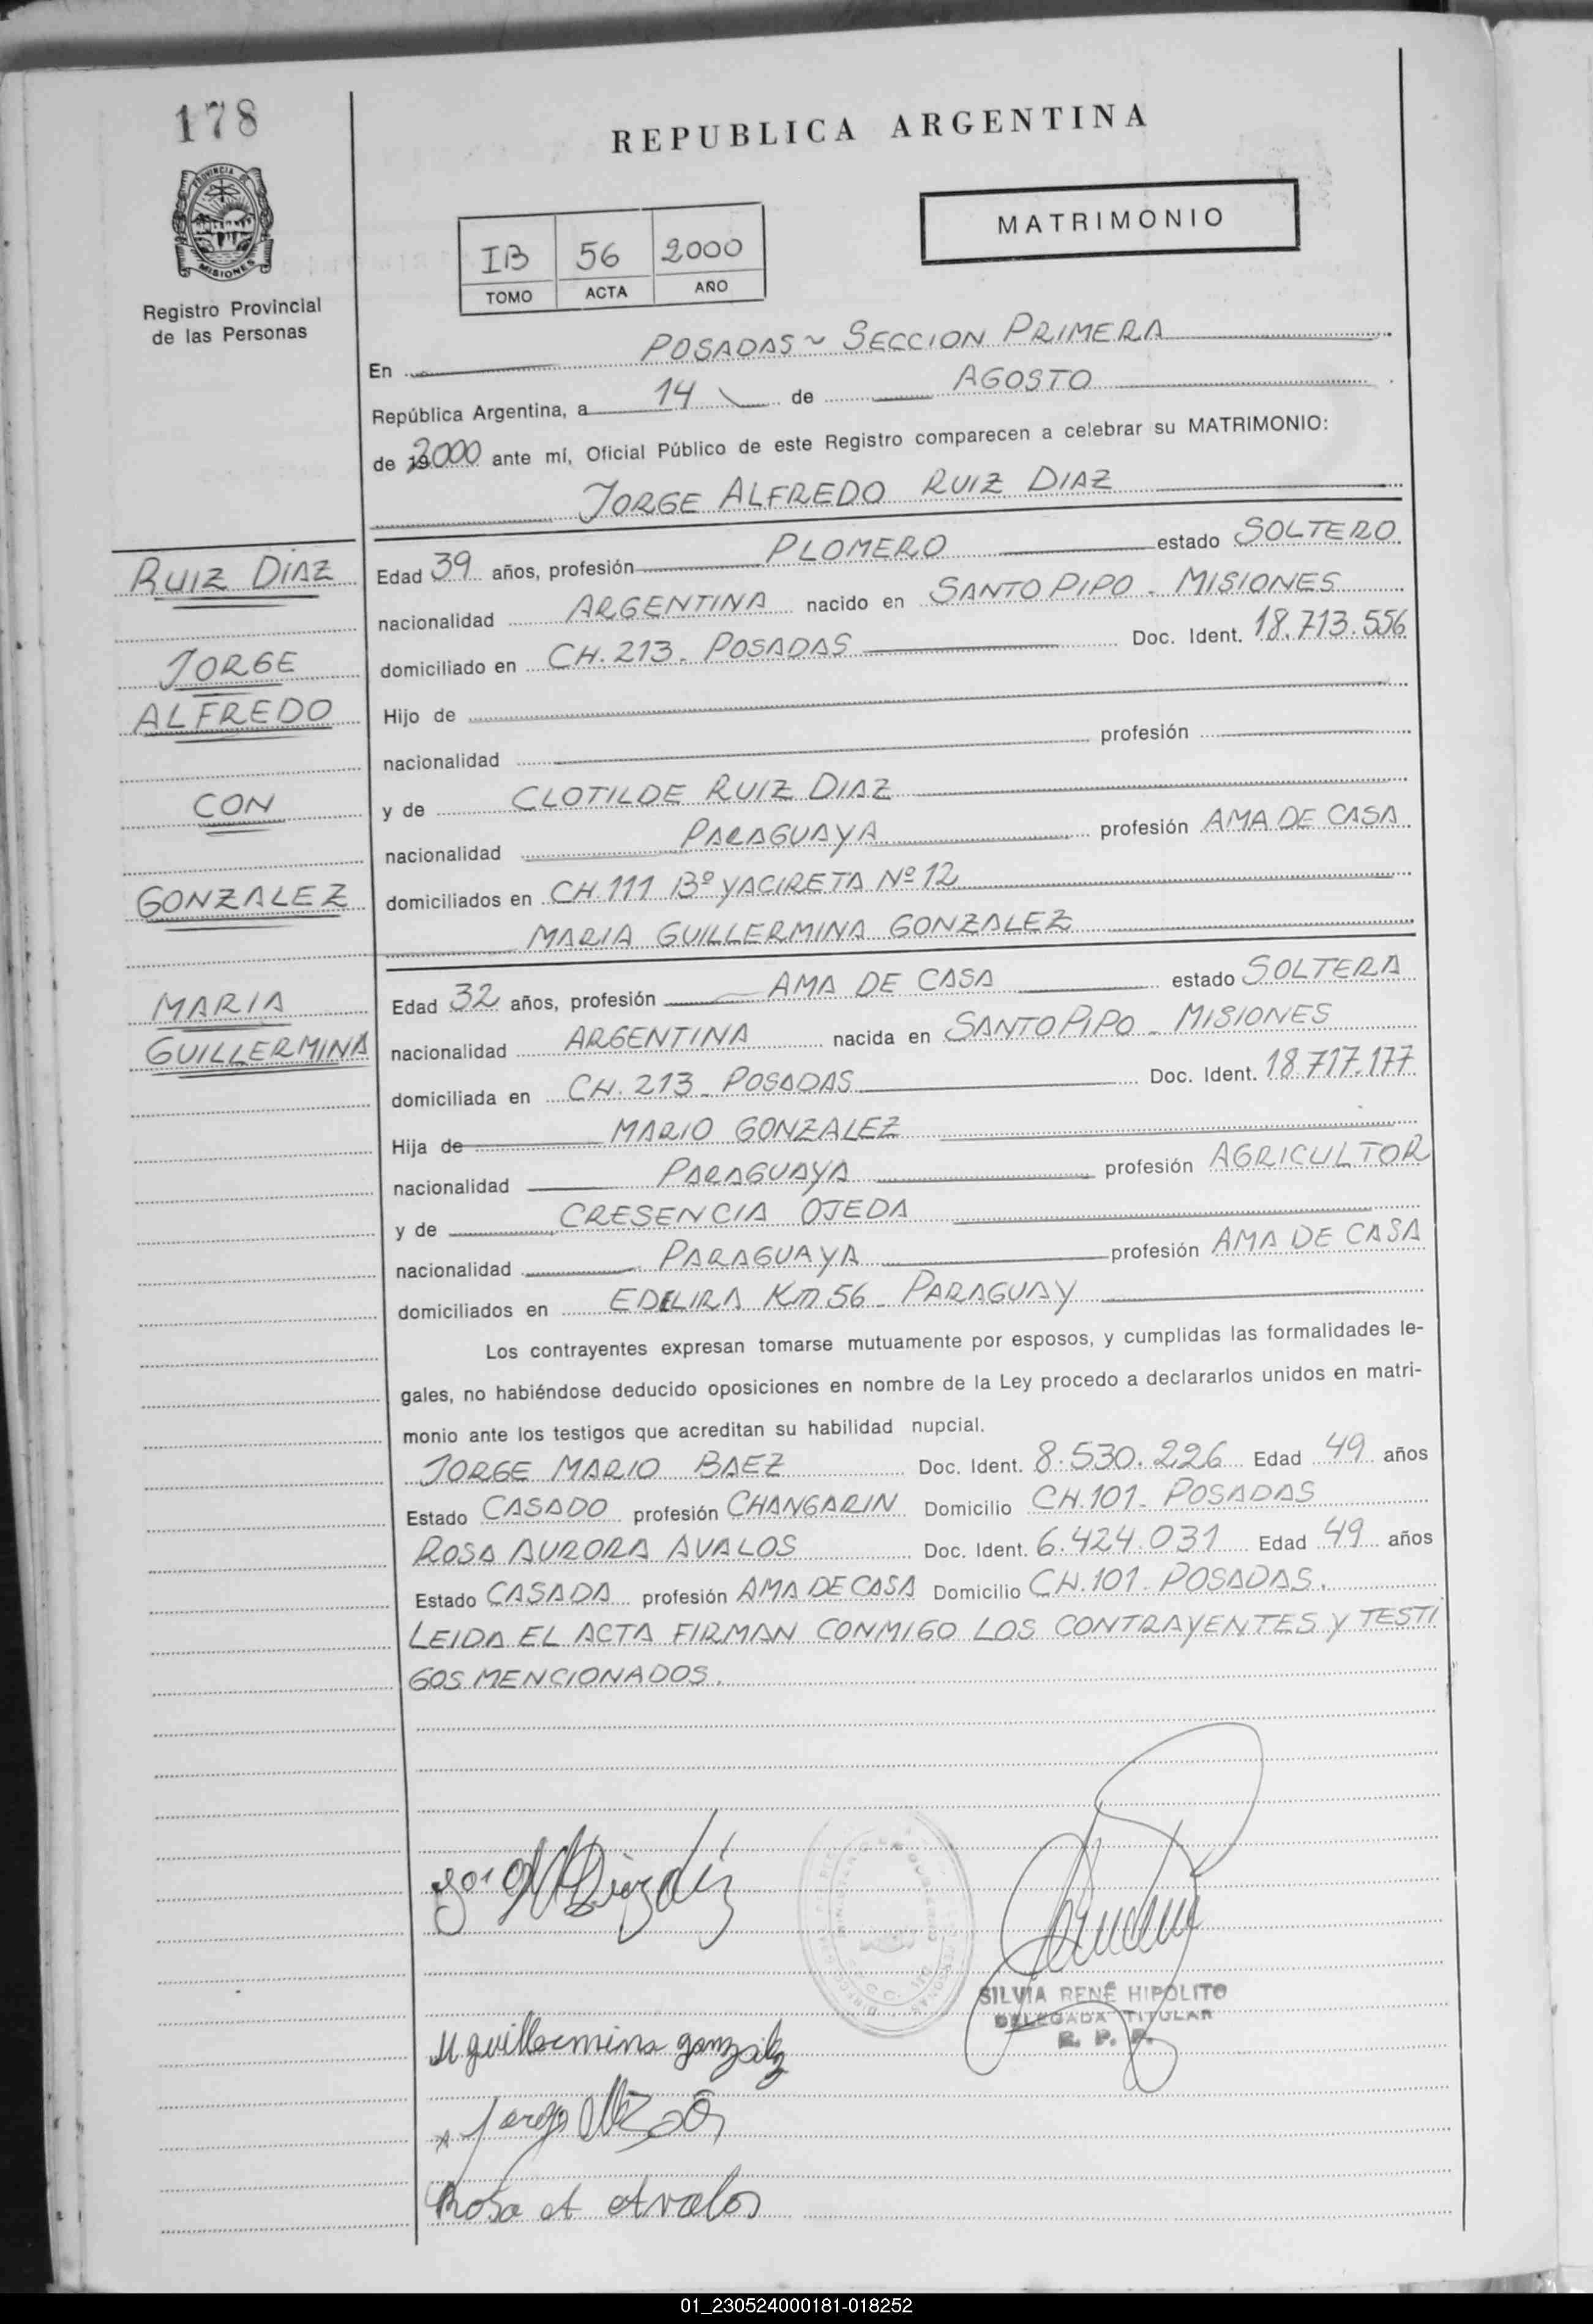 178
REPUBLICA ARGENTINA
PROVINCIA DE
MISIONES
Registro Provincial
de las Personas
MATRIMONIO
IB 56 2000
TOMO ACTA AÑO
En POSADAS ~ SECCION PRIMERA
República Argentina, a 14 de AGOSTO
de 2000 ante mí, Oficial Público de este Registro comparecen a celebrar su MATRIMONIO:
JORGE ALFREDO RUIZ DIAZ
RUIZ DIAZ
JORGE
ALFREDO
CON
GONZALEZ
MARIA
GUILLERMINA
Edad 39 años, profesión PLOMERO estado SOLTERO
nacionalidad ARGENTINA nacido en SANTO PIPO - MISIONES
domiciliado en CH. 213 - POSADAS Doc. Ident. 18.713.556
Hijo de
nacionalidad profesión
y de CLOTILDE RUIZ DIAZ
nacionalidad PARAGUAYA profesión AMA DE CASA
domiciliados en CH. 111 Bº YACIRETA Nº 12
MARIA GUILLERMINA GONZALEZ
Edad 32 años, profesión AMA DE CASA estado SOLTERA
nacionalidad ARGENTINA nacida en SANTO PIPO - MISIONES
domiciliada en CH. 213 - POSADAS Doc. Ident. 18.717.177
Hija de MARIO GONZALEZ
nacionalidad PARAGUAYA profesión AGRICULTOR
y de CRESENCIA OJEDA
nacionalidad PARAGUAYA profesión AMA DE CASA
domiciliados en EDELIRA Km 56 - PARAGUAY
Los contrayentes expresan tomarse mutuamente por esposos, y cumplidas las formalidades le-
gales, no habiéndose deducido oposiciones en nombre de la Ley procedo a declararlos unidos en matri-
monio ante los testigos que acreditan su habilidad nupcial.
JORGE MARIO BAEZ Doc. Ident. 8.530.226 Edad 49 años
Estado CASADO profesión CHANGARIN Domicilio CH. 101 - POSADAS
ROSA AURORA AVALOS Doc. Ident. 6.424.031 Edad 49 años
Estado CASADA profesión AMA DE CASA Domicilio CH. 101 - POSADAS.
LEIDA EL ACTA FIRMAN CONMIGO LOS CONTRAYENTES Y TESTI
GOS MENCIONADOS.
SILVIA RENÉ HIPOLITO
DELEGADA TITULAR
R. P. P.
M guillermina gonzalez
Rosa A Avalos
01_230524000181-018252